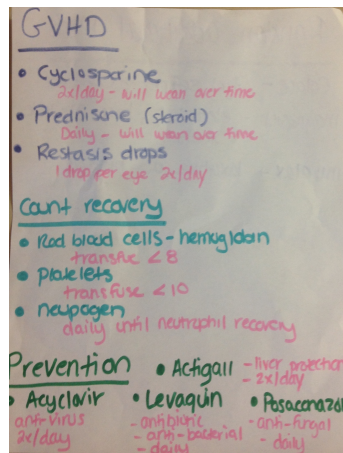 GVHD
• Cyclosporine
2x/day - will wean over time
• Prednisone (steroid)
Daily - will wean over time
• Restasis drops
1 drop per eye 2x/day
Count recovery
• Red blood cells - hemoglobin
transfuse < 8
• Platelets
transfuse < 10
• neupogen
daily until neutrophil recovery
Prevention
• Actigall - liver protection
- 2x/day
• Acyclovir
anti-virus
2x/day
• Levaquin
- antibiotic
- anti-bacterial
- daily
• Posaconazol
- anti-fungal
- daily